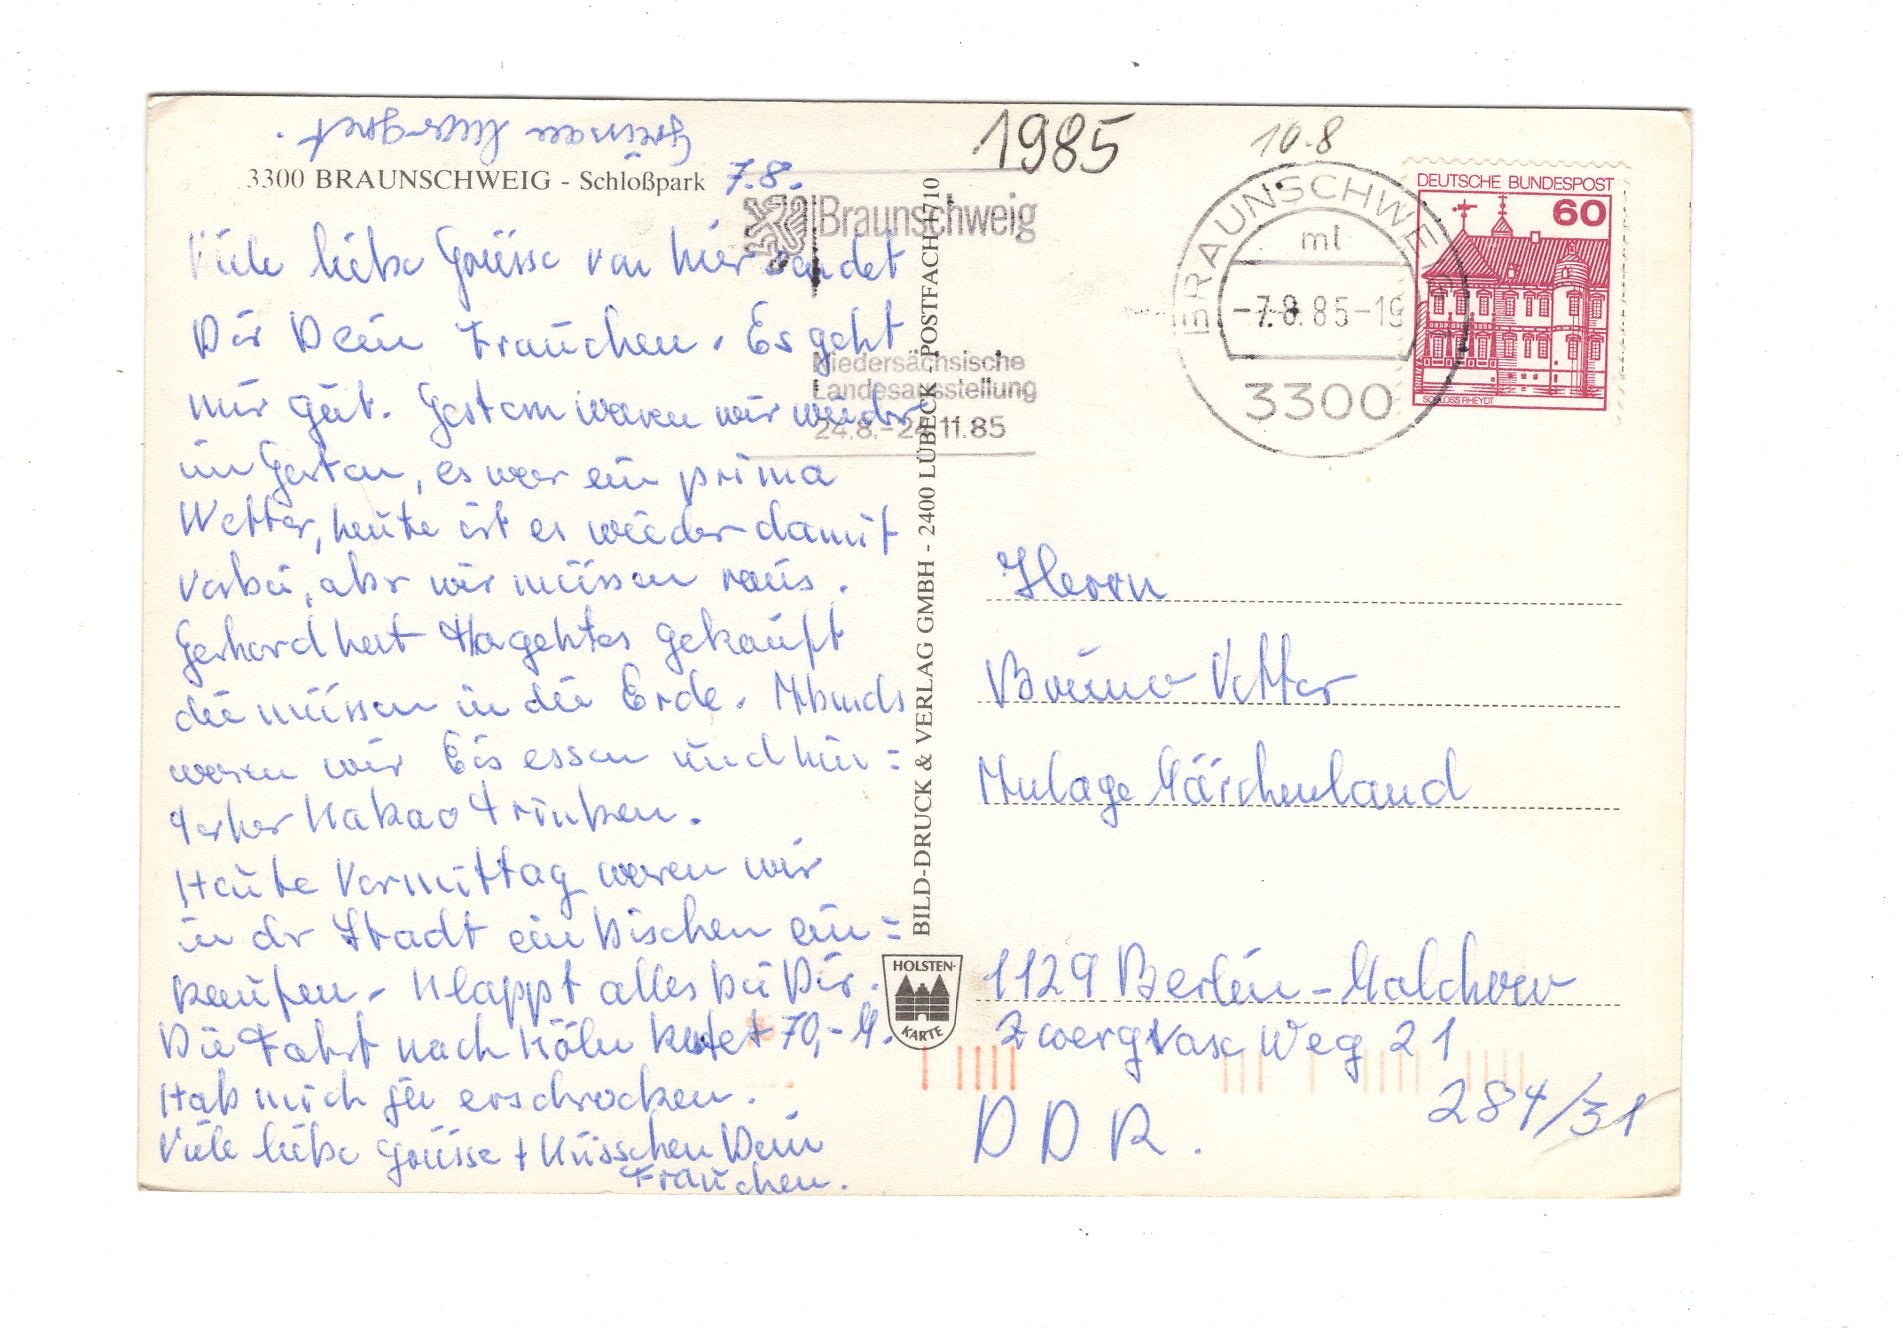 1985
10.8
3300 BRAUNSCHWEIG - Schloßpark
7.8.
Viele liebe Grüsse von hier sendet
Dir Dein Frauchen. Es geht
mir gut. Gestern waren wir wieder
im Garten, es war ein prima
Wetter, heute ist es wieder damit
vorbei, aber wir müssen raus.
Gerhard hat gekauft
die müssen in die Erde. Abends
waren wir Eis essen und hin=
terher Kakao trinken.
Heute Vormittag waren wir
in der Stadt ein bischen ein=
kaufen. Klappt alles bei Dir.
Die Fahrt nach Köln kostet 70,- M.
Hab mich ja erschrocken.
Viele liebe Grüsse + Küsschen Dein
Frauchen.
Margret.
Braunschweig
Niedersächsische
Landesausstellung
24.8.-24.11.85
BILD-DRUCK & VERLAG GMBH - 2400 LÜBECK POSTFACH 1710
HOLSTEN-
KARTE
BRAUNSCHWEIG
ml
-7.8.85-19
3300
DEUTSCHE BUNDESPOST
60
SCHLOSS RHEYDT
Herrn
Bruno Vetter
Anlage Märchenland
1129 Berlin-Malchow
Zwergnase Weg 21
284/31
DDR.